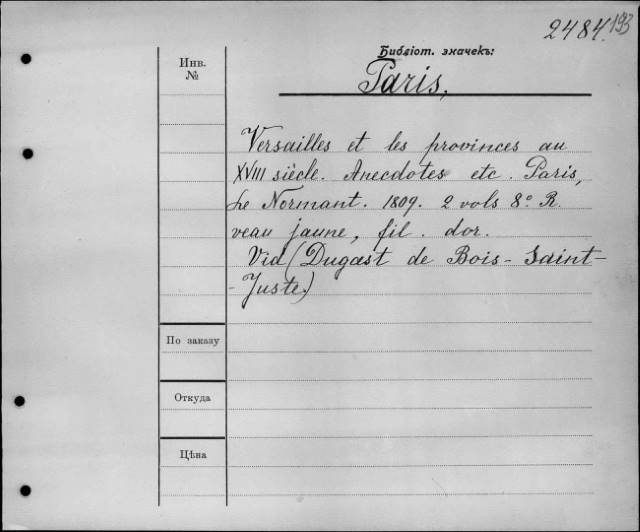 2484.193
Библіот. значекъ:
Инв.
№
Paris,
Versailles et les provinces au
XVIII siècle. Anecdotes etc. Paris,
Le Normant. 1809. 2 vols 8º R.
veau jaune, fil. dor.
Vid (Dugast de Bois-Saint-
-Juste.)
По заказу
Откуда
Цѣна